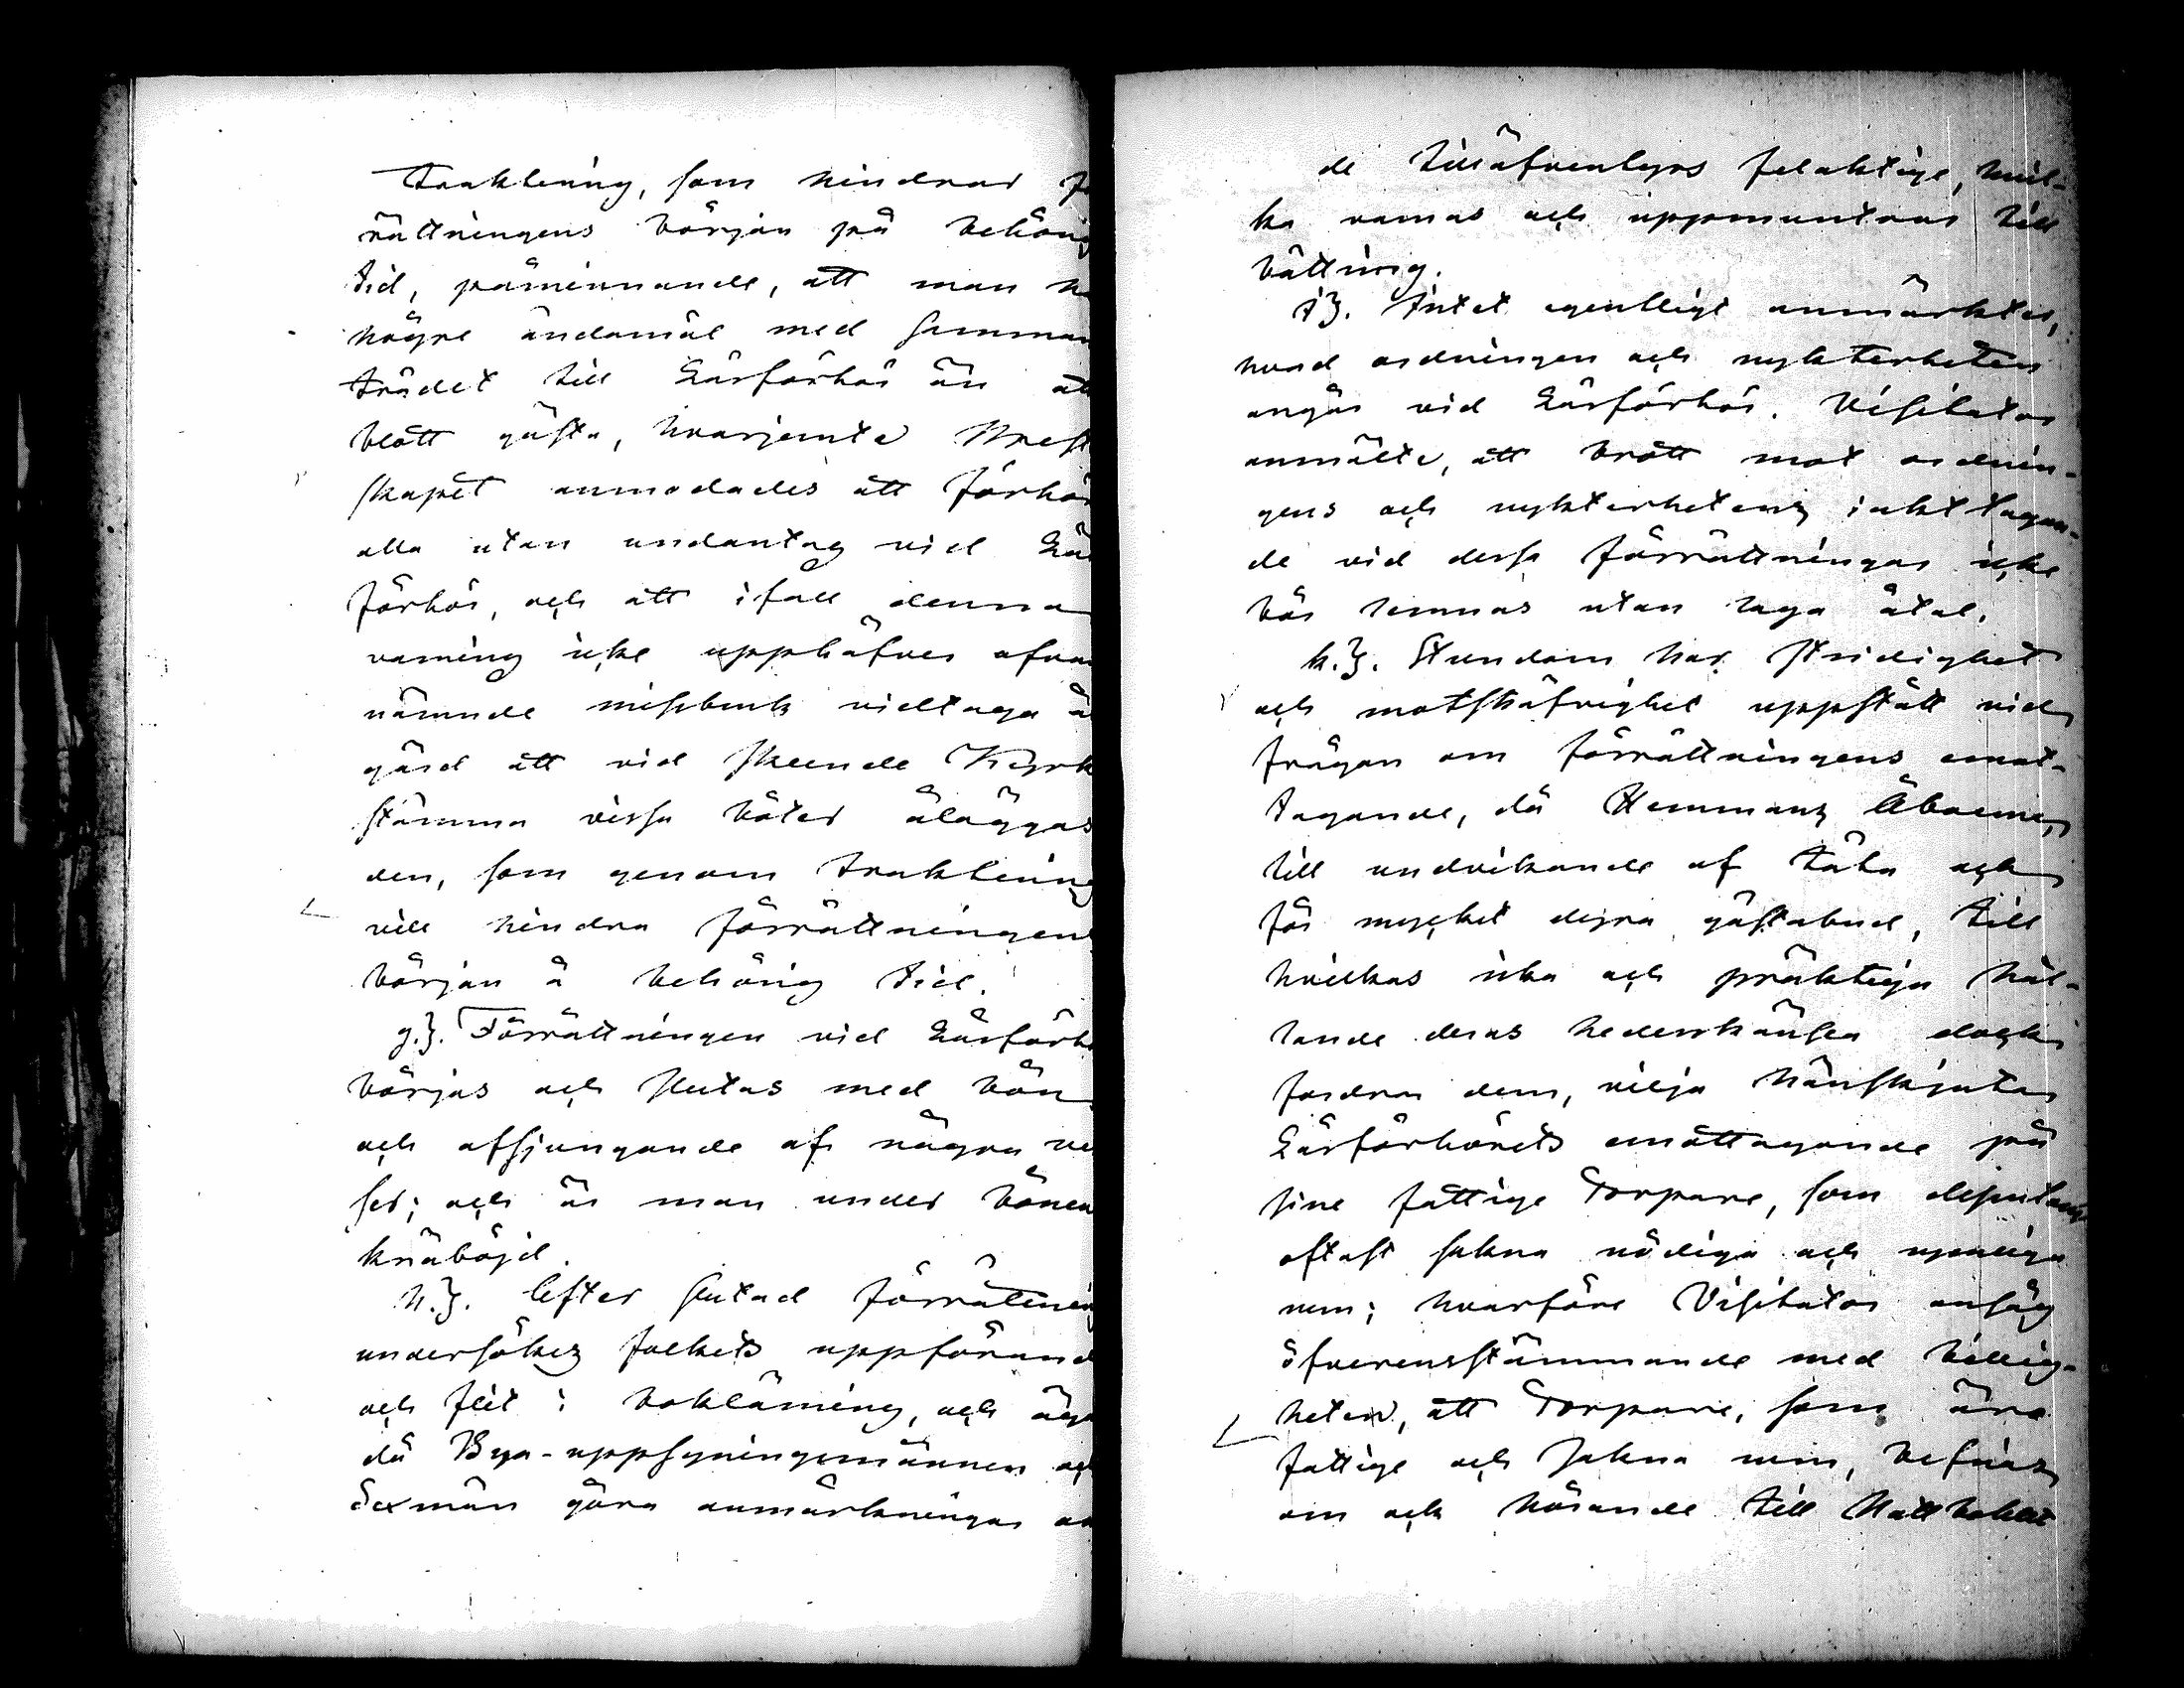 traktering, som hindrar fö
rättningens början på behörig
tid, påminnande, att man ha
högre ändamål med samman
trädet till Läsförhör än at
blott gästa, hvarjemte Prest
skapet anmodades att förhör
alla utan undantag vid Läs
förhör, och att ifall denna
varning icke upphäfver ofvan
nämnde missbruk vidtaga å
gärd att vid skeende Kyrk
stämma vissa böter åläggas
den, som genom traktering
vill hindra förrättningens
början å behörig tid.
g.). Förrättningen vid Läsförh
börjas och slutas med bön
och afsjungande af några ve
ser; och är man under bönen
knäböjd.
h.). Efter slutad förrättning
undersökes folkets uppförand
och flit i boklärning, och äga
då Bya-uppsyningsmännen och
Sexmän göra anmärkningar om
de tilläfventyrs felaktige, hvil-
ka varnas och uppmuntras till
bättring.
i). Intet egentligt anmärktes,
hvad ordningen och nykterheten
angår vid Läsförhör. Visitator
anmälte, att brott mot ordnin-
gens och nykterhetens iakttagan-
de vid dessa förrättningar icke
bör lemnas utan laga åtal.
k.). Stundom har stridighet
och motsträfvighet uppstått vid
frågan om förrättningens emot-
tagande, då Hemmans Åboerne,
till undvikande af täta och
för mycket dyra gästabud, till
hvilkas rika och präktiga hål-
lande deras hederskänsla dock
fordrar dem, vilja hänskjuta
Läsförhörets emottagande på
sine fattige Torpare, som
oftast sakna nödiga och nyttiga
rum; hvarföre Visitator ansåg
öfverensstämmande med billig-
heten, att Torpare, som äro
fattige och sakna rum, befrias
om ock hörande till